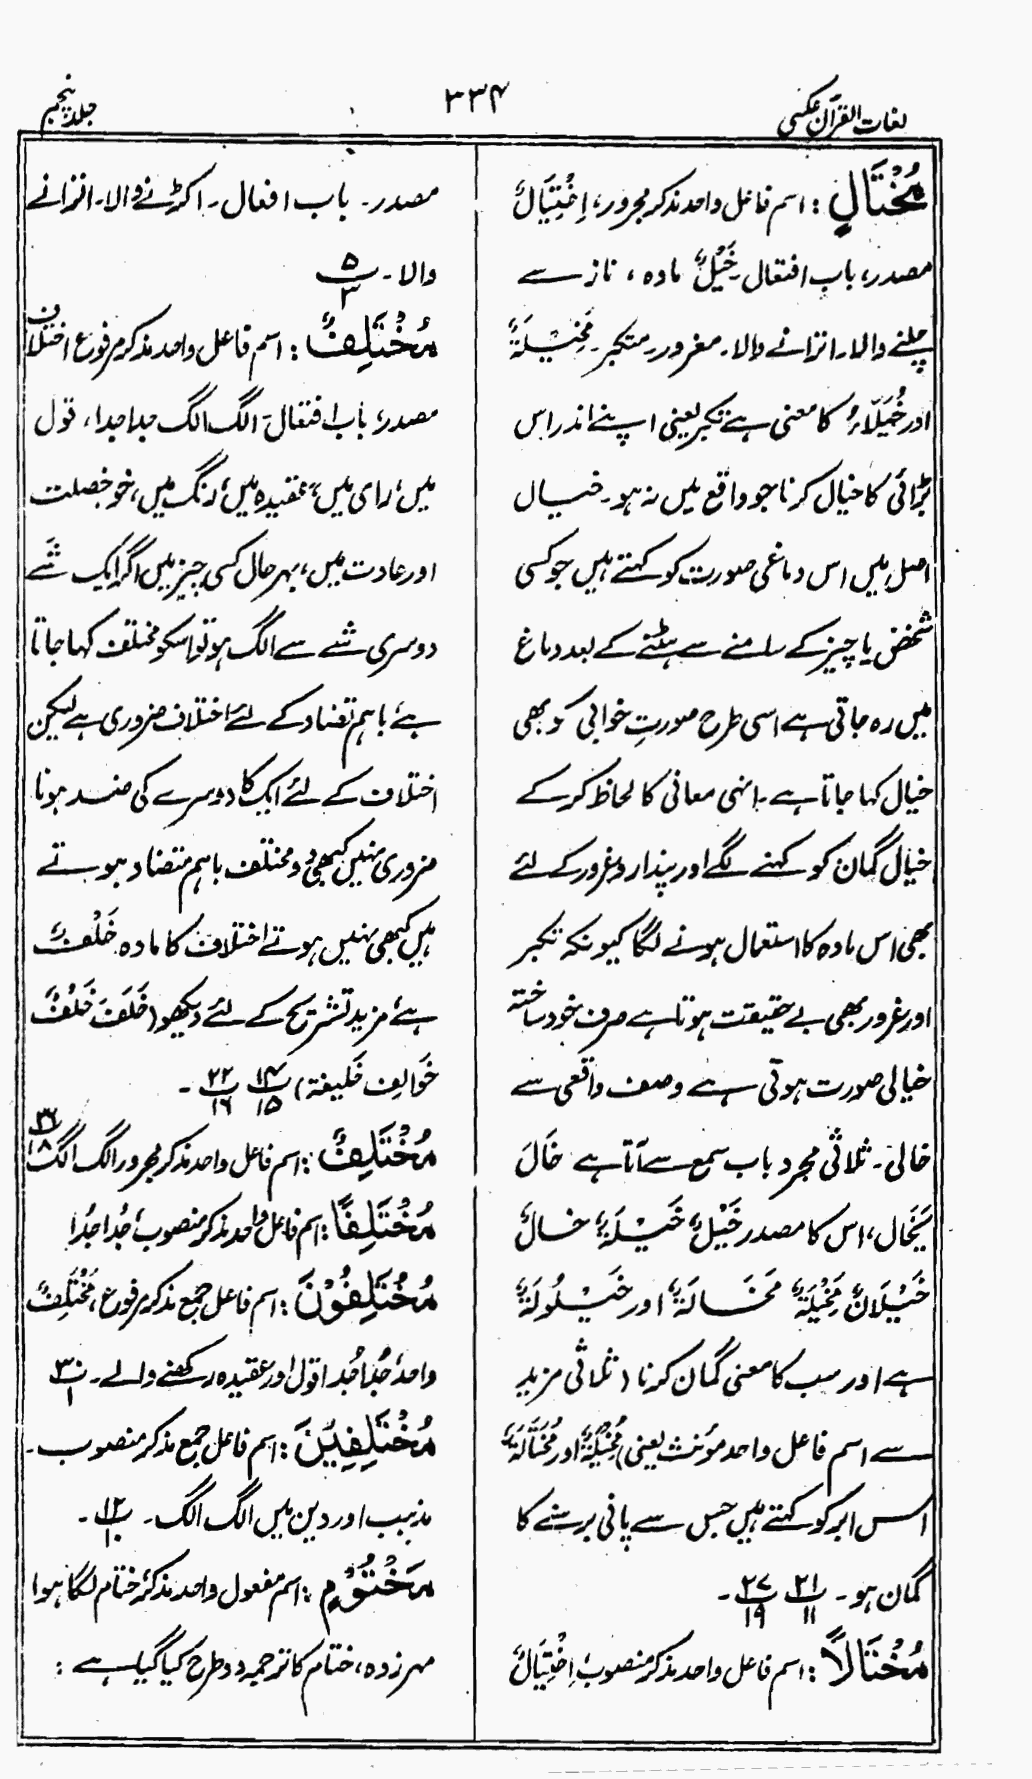 لغات القرآن عکسی
۳۳۴
جلد پنجم
مُخْتَالٍ : اسم فاعل واحد مذکر مجرور، اِخْتِیَالٌ
مصدر، باب افتعال خَیْلٌ مادہ، ناز سے
چلنے والا۔ اترانے والا۔ مغرور۔ متکبر۔ مَخِیْلَۃٌ
اور خُیَلَاءُ کا معنی ہے تکبر یعنی اپنے اندر اس
بڑائی کا خیال کرنا جو واقع میں نہ ہو۔ خیال
اصل میں اس دماغی صورت کو کہتے ہیں جو کسی
شخص یا چیز کے سامنے سے ہٹنے کے بعد دماغ
میں رہ جاتی ہے اسی طرح صورتِ خوابی کو بھی
خیال کہا جاتا ہے۔ انہی معانی کا لحاظ کر کے
خیال گمان کو کہنے لگے اور پندار و غرور کے لئے
بھی اس مادہ کا استعمال ہونے لگا کیونکہ تکبر
اور غرور بھی بے حقیقت ہوتا ہے صرف خود ساختہ
خیالی صورت ہوتی ہے وصف واقعی سے
خالی۔ ثلاثی مجرد باب سمع سے آتا ہے خَالَ
یَخَالُ، اس کا مصدر خَیْلٌ خَیْلَۃٌ خَالٌ
خَیْلَانٌ مَخِیْلَۃٌ مَخَالَۃٌ اور خَیْلُوْلَۃٌ
ہے اور سب کا معنی گمان کرنا (ثلاثی مزید
سے اسم فاعل واحد مؤنث یعنی) مُخِیْلَۃٌ اور مُخْتَالَۃٌ
اس ابر کو کہتے ہیں جس سے پانی برسنے کا
گمان ہو۔ ۲۱/۱۱ ۲۷/۱۹ ۔
مُخْتَالًا : اسم فاعل واحد مذکر منصوب اِخْتِیَالٌ
مصدر۔ باب افعال۔ اکڑنے والا۔ اترانے
والا۔ ۵/۳
مُخْتَلِفٌ : اسم فاعل واحد مذکر مرفوع اختلاف
مصدر، باب افتعال۔ الگ الگ جدا جدا، قول
میں، رای میں، عقیدہ میں، رنگ میں، خو خصلت
اور عادت میں، بہر حال کسی چیز میں اگر ایک شَے
دوسری شے سے الگ ہو تو اسکو مختلف کہا جاتا
ہے، باہم تضاد کے لئے اختلاف ضروری ہے لیکن
اختلاف کے لئے ایک کا دوسرے کی ضد ہونا
ضروری نہیں کبھی دو مختلف باہم متضاد ہوتے
ہیں کبھی نہیں ہوتے اختلاف کا مادہ خَلْفٌ
ہے، مزید تشریح کے لئے دیکھو (خَلَفَ خَلْفٌ
خَوالِف خَلیفۃ) ۱۴/۱۵ ۲۲/۱۶ ۔
مُخْتَلِفٌ : اسم فاعل واحد مذکر مجرور الگ الگ ۳۶/۱۸
مُخْتَلِفًا : اسم فاعل واحد مذکر منصوب، جُدا جُدا
مُخْتَلِفُوْنَ : اسم فاعل جمع مذکر مرفوع، مُخْتَلِفٌ
واحد، جُدا جُدا قول اور عقیدہ رکھنے والے۔ ۳۰/۱
مُخْتَلِفِیْنَ : اسم فاعل جمع مذکر منصوب۔
مذہب اور دین میں الگ الگ۔ ۱۲/۱۰ ۔
مَخْتُوْمٍ : اسم مفعول واحد مذکر، ختام لگا ہوا
مہر زدہ، ختام کا ترجمہ دو طرح کیا گیا ہے :